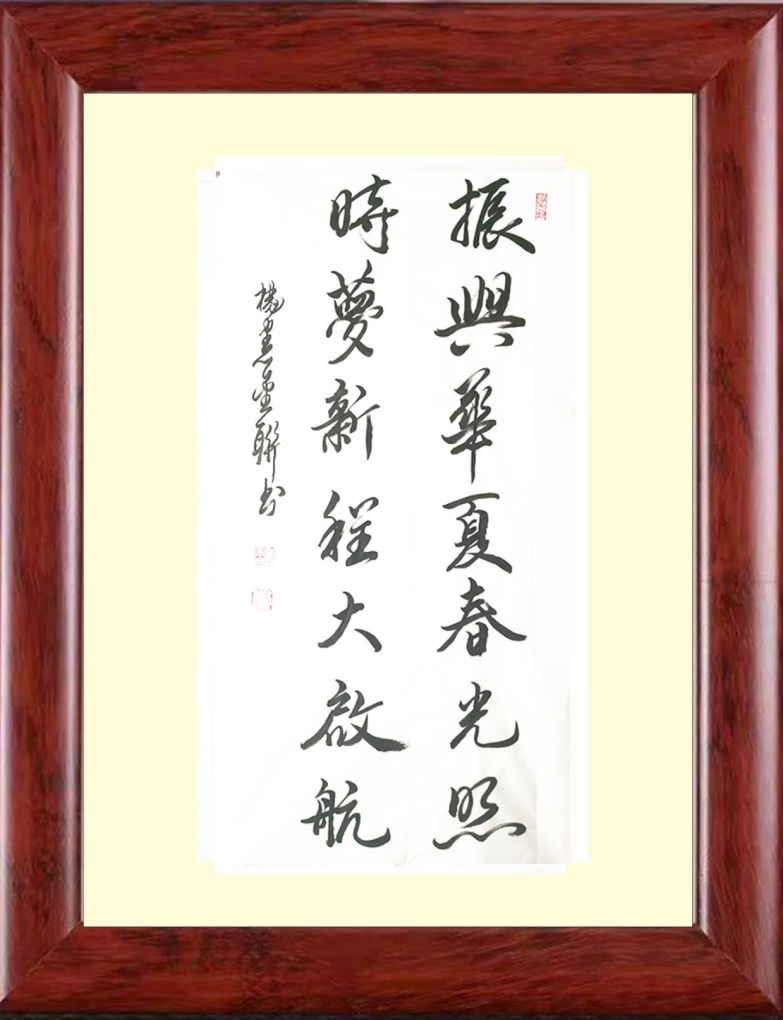 振興華夏春光照
時夢新程大啟航
楊書聯書